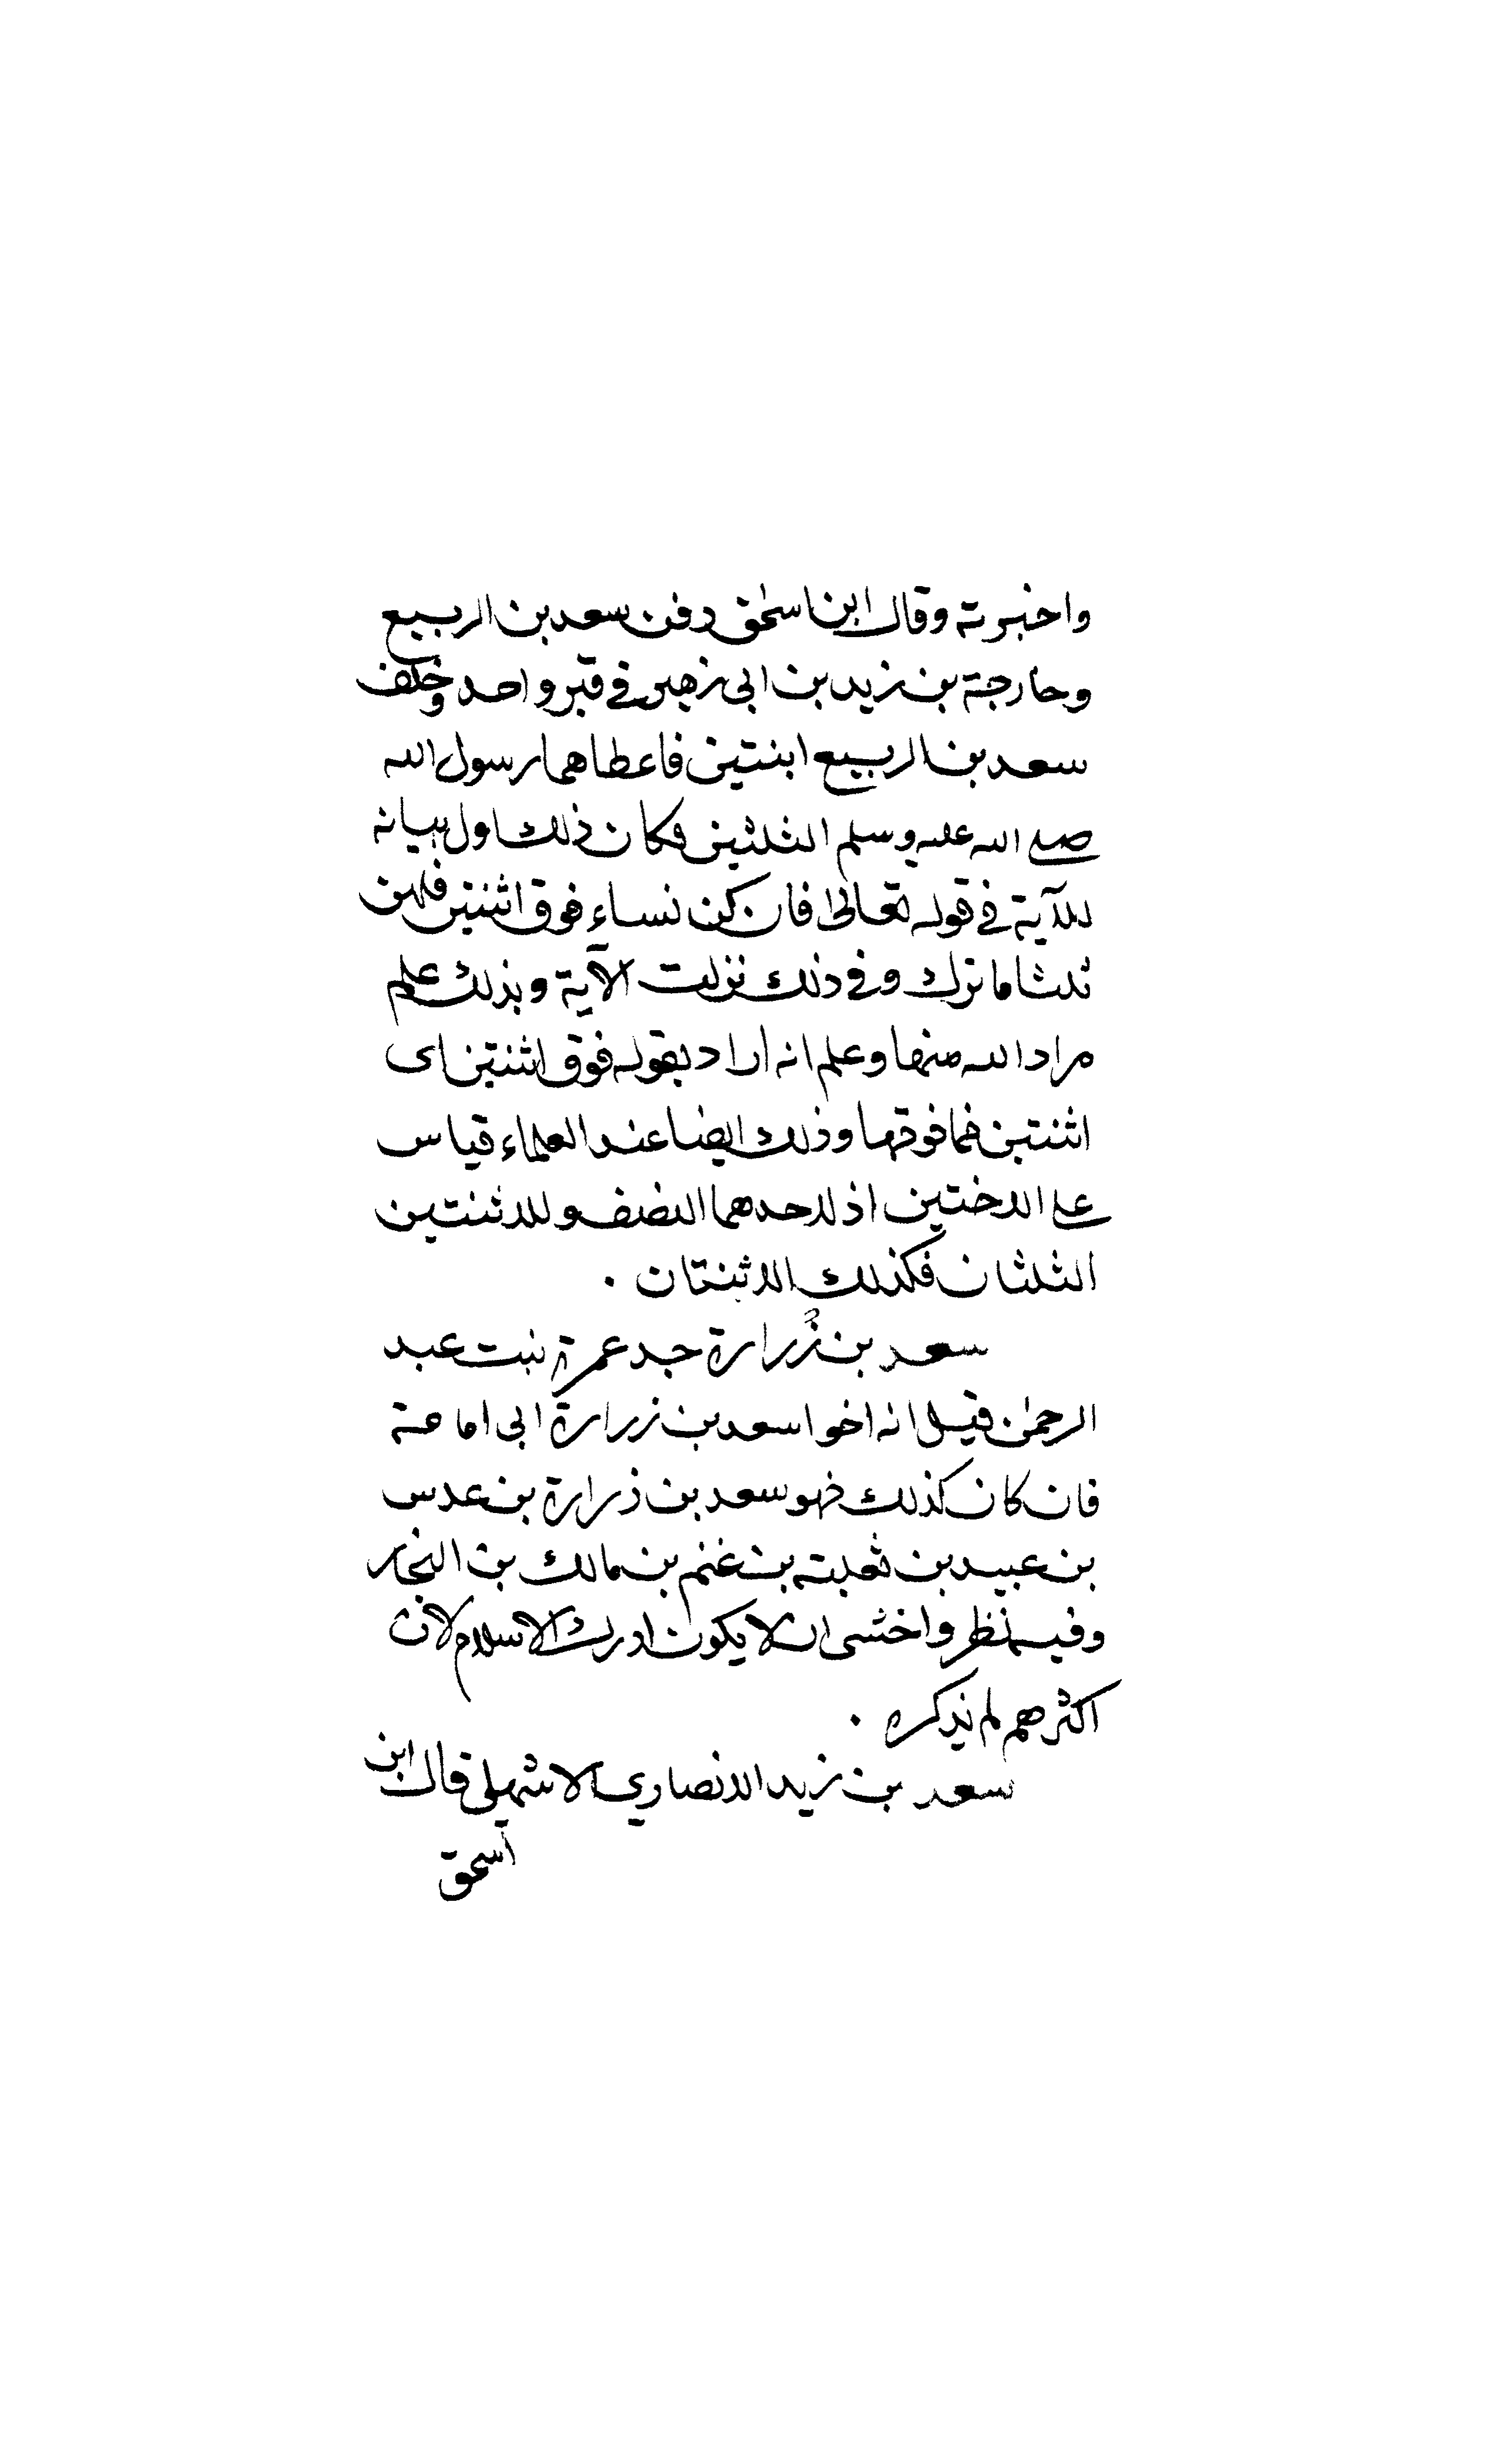 واخبرته وقال ابن اسحٰق دفن سعد بن الربيع
وخارجة بن زيد بن ابي زهير في قبر واحد وخلف
سعد بن الربيع ابنتين فاعطاهما رسول الله
صلى الله عليه وسلم الثلثين فكان ذلك اول بيانه
للآية في قوله تعالى فان كن نساء فوق اثنتين فلهن
ثلثا ما ترك وفي ذلك نزلت الآية وبذلك علم
مراد الله منها وعلم انه اراد بقوله فوق اثنتين اى
اثنتين فما فوقها وذلك ايضا عند العلماء قياس
على الاختين اذ لاحدهما النصف وللاثنتين
الثلثان فكذلك الاثنتان .
سعد بن زرارة جد عمرة بنت عبد
الرحمٰن قيل انه اخو اسعد بن زرارة ابي امامة
فان كان كذلك فهو سعد بن زرارة بن عدس
بن عبيد بن ثعلبة بن غنم بن مالك بن النجار
وفيه نظر واخشى ان لا يكون ادرك الاسلام لان
اكثرهم لم يذكره .
سعد بن زيد الانصاري الاشهلي قال ابن
اسحق